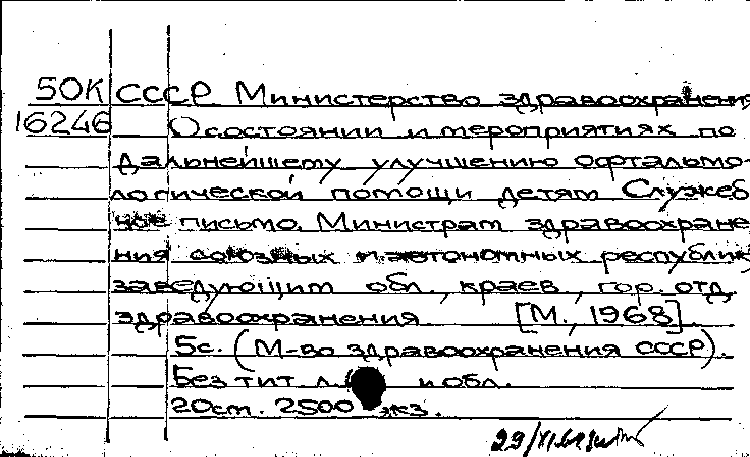 50К СССР Министерство здравоохранения
16246 О состоянии и мероприятиях по
дальнейшему улучшению офтальмо-
логической помощи детям Служеб
ное письмо. Министрам здравоохране
ния союзных и автономных республик
заведующим обл., краев., гор. отд.
здравоохранения [М., 1968].
5с. (М-во здравоохранения СССР).
Без тит л. и обл.
20см. 2500 экз.